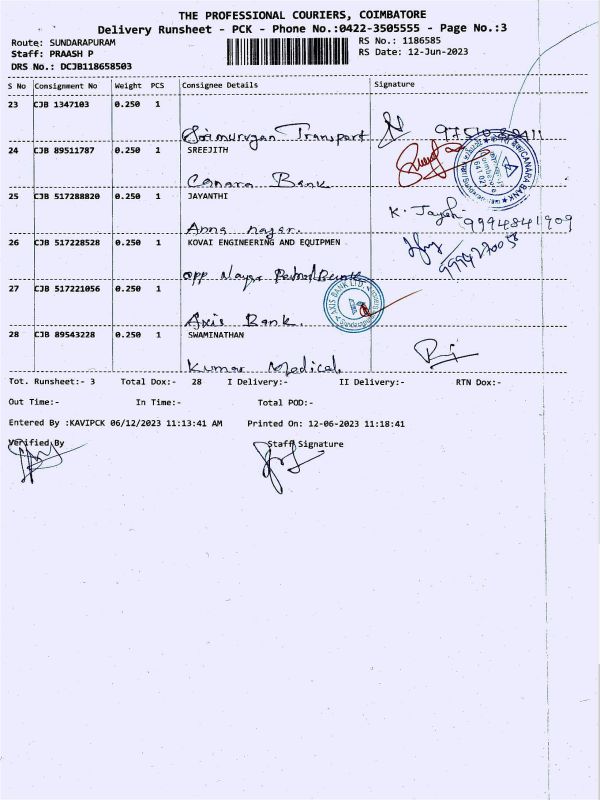 THE PROFESSIONAL COURIERS, COIMBATORE
Delivery Runsheet - PCK - Phone No.:0422-3505555 - Page No.:3
Route: SUNDARAPURAM
RS No.: 1186585
Staff: PRAASH P
RS Date: 12-Jun-2023
DRS No.: DCJB118658503
S No Consignment No Weight PCS Consignee Details Signature
23 CJB 1347103 0.250 1
Srimurugan Transport
24 CJB 89511787 0.250 1 SREEJITH
Canara Bank
CANARA BANK
25 CJB 517288820 0.250 1 JAYANTHI
Anna nagar.
9994841909
26 CJB 517228528 0.250 1 KOVAI ENGINEERING AND EQUIPMEN
opp Nayar Petrol Bunk
27 CJB 517221056 0.250 1
Axis Bank.
AXIS BANK LTD
28 CJB 89543228 0.250 1 SWAMINATHAN
Kumar Medical
Tot. Runsheet:- 3 Total Dox:- 28 I Delivery:- II Delivery:- RTN Dox:-
Out Time:- In Time:- Total POD:-
Entered By :KAVIPCK 06/12/2023 11:13:41 AM Printed On: 12-06-2023 11:18:41
Verified By Staff Signature